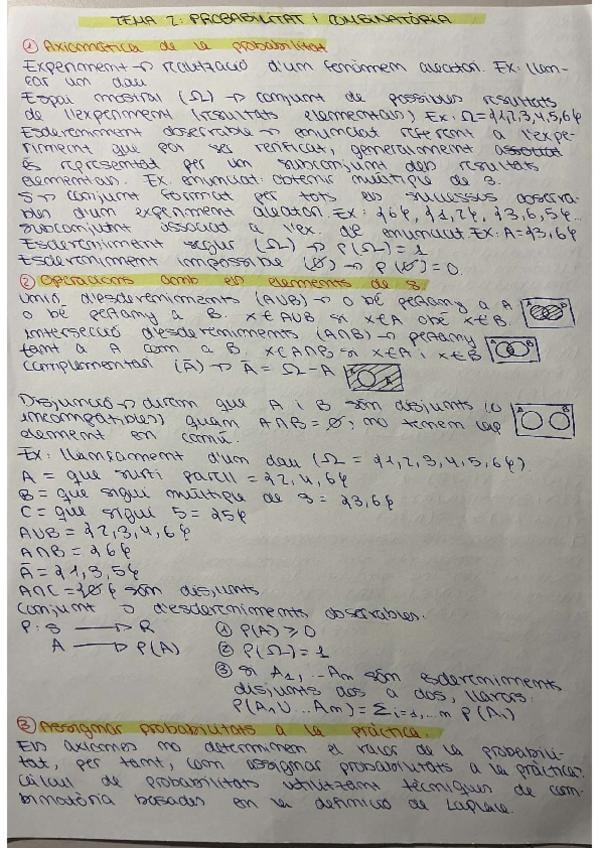 TEMA 2: PROBABILITAT i COMBINATÒRIA
① Axiomàtica de la probabilitat
Experiment → realització d'un fenòmem aleatori. Ex: llan-
çar un dau
Espai mostral (Ω) → conjunt de possibles resultats
de l'experiment (resultats elementals) Ex: Ω={1,2,3,4,5,6}
Esdeveniment observable → enunciat referent a l'expe-
riment que pot ser verificat, generalment associat
és representat per un subconjunt dels resultats
elementals. Ex. enunciat: obtenir múltiple de 3.
S → conjunt format per tots els successos observa-
bles d'un experiment aleatori. Ex: {6}, {1,2}, {3,6,5}...
Subconjunt associat a l'ex. de enunciat. Ex: A={3,6}
Esdeveniment segur (Ω) → P(Ω)=1
Esdeveniment impossible (∅) → P(∅)=0.
② Operacions amb els elements de S.
Unió d'esdeveniments (A∪B) → o bé pertany a A
o bé pertany a B. x∈A∪B si x∈A o bé x∈B.
A B
Intersecció d'esdeveniments (A∩B) → pertany
tant a A com a B. x∈A∩B si x∈A i x∈B
Complementari (Ā) → Ā = Ω - A
Disjunció → direm que A i B són disjunts (o
incompatibles) quan A∩B = ∅; no tenen cap
element en comú.
A B
Ex: llançament d'un dau (Ω = {1,2,3,4,5,6}).
A = que surti parell = {2,4,6}
B = que sigui múltiple de 3 = {3,6}
C = que sigui 5 = {5}
A∪B = {2,3,4,6}
A∩B = {6}
Ā = {1,3,5}
A∩C = {∅} són disjunts
Conjunt d'esdeveniments observables.
P: S → R ① P(A) ≥ 0
A → P(A) ② P(Ω) = 1
③ si A₁, ...Aₙ són esdeveniments
disjunts dos a dos, llavors:
P(A₁∪...Aₙ) = Σi=1,...n P(Ai)
③ Assignar probabilitats a la pràctica.
Els axiomes no determinen el valor de la probabili-
tat, per tant, com assignar probabilitats a la pràctica?
Càlcul de probabilitats utilitzant tècniques de com-
binatòria basades en la definició de Laplace.